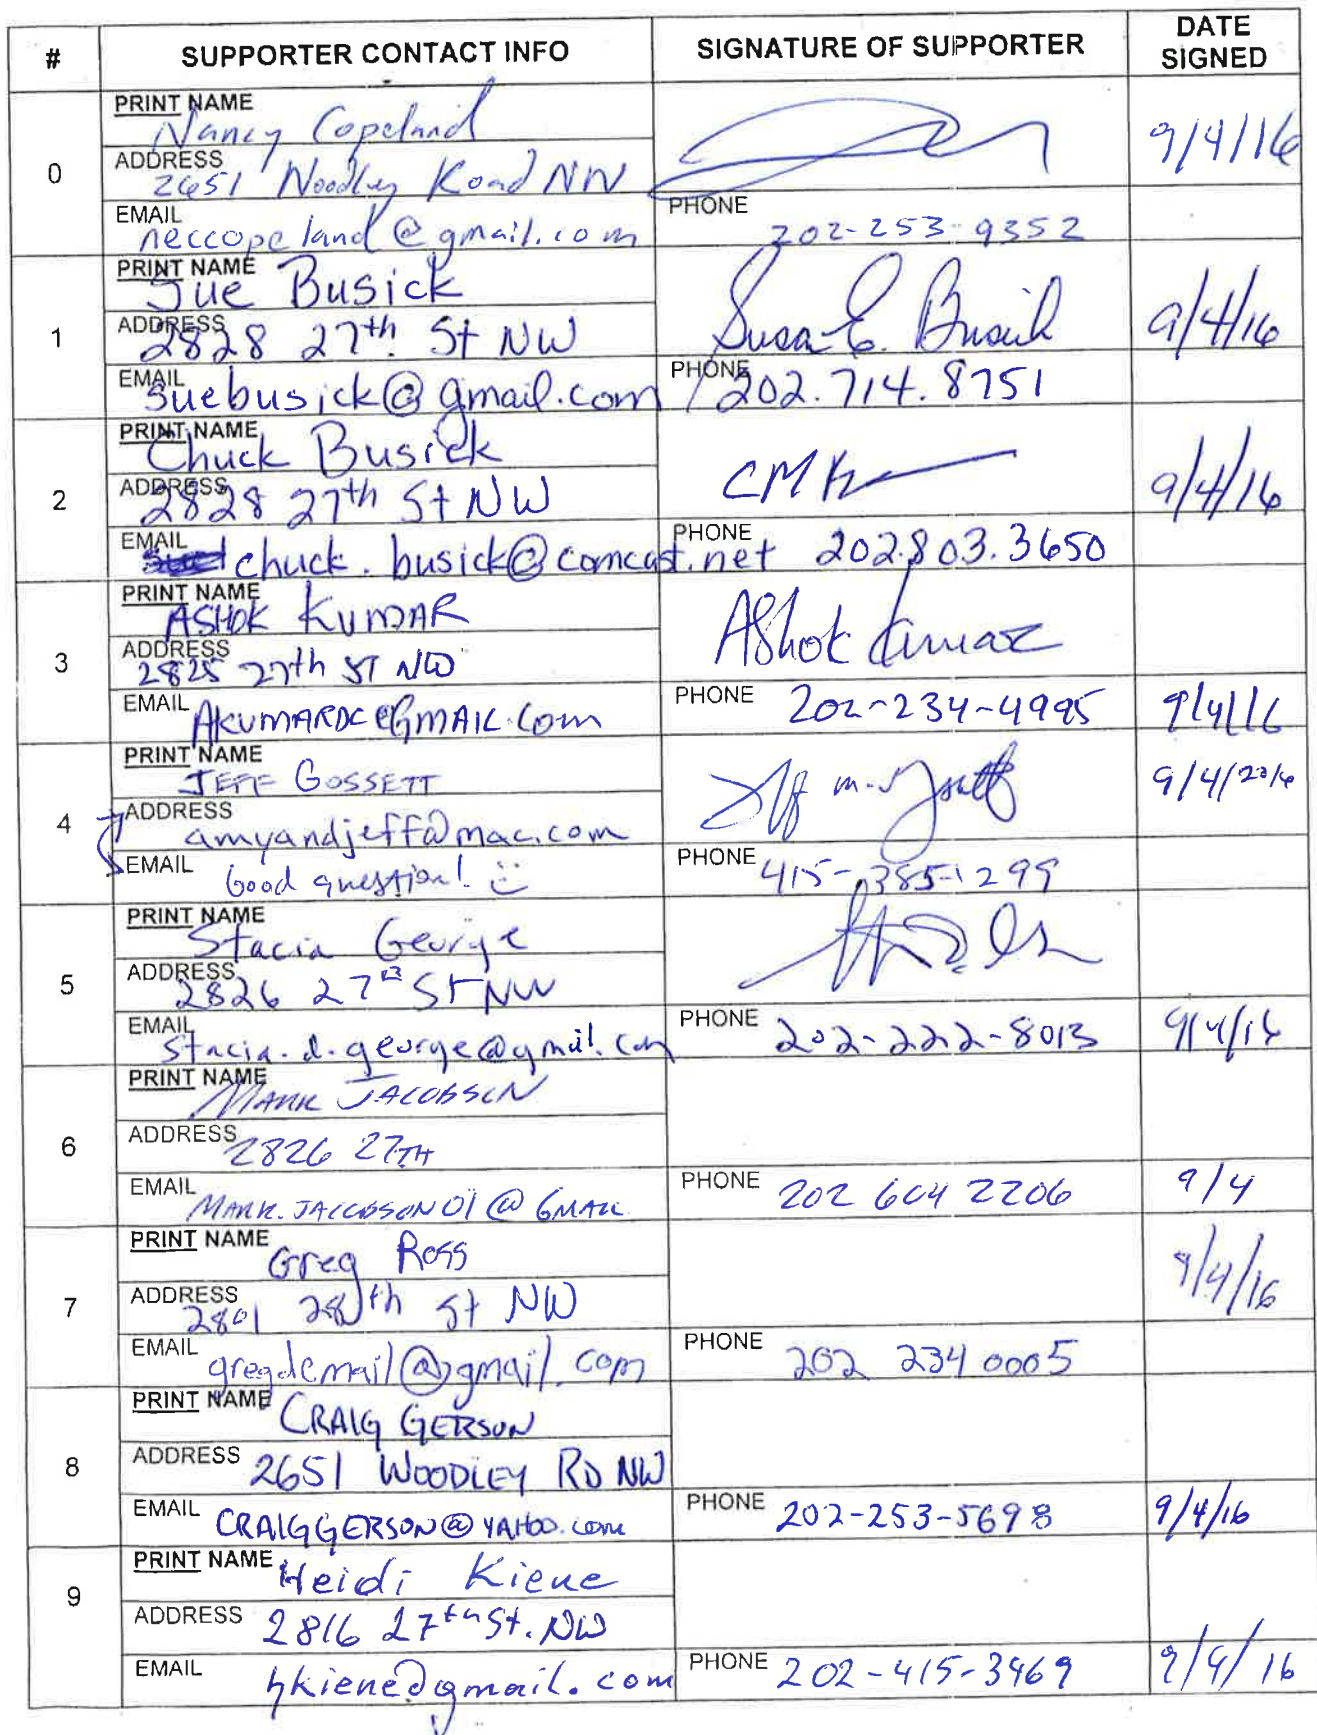 # SUPPORTER CONTACT INFO SIGNATURE OF SUPPORTER DATE SIGNED
0
PRINT NAME Nancy Copeland 9/4/16
ADDRESS 2651 Woodley Road NW
EMAIL neccopeland@gmail.com PHONE 202-253-9352
1
PRINT NAME Sue Busick Susan E. Busick 9/4/16
ADDRESS 2828 27th St NW
EMAIL suebusick@gmail.com PHONE 202.714.8751
2
PRINT NAME Chuck Busick 9/4/16
ADDRESS 2828 27th St NW
EMAIL chuck.busick@comcast.net PHONE 202.803.3650
3
PRINT NAME ASHOK KUMAR Ashok Kumar
ADDRESS 2825 27th ST NW
EMAIL AKUMARDC@GMAIL.Com PHONE 202-234-4995 9/4/16
4
PRINT NAME JEFF GOSSETT 9/4/2016
ADDRESS amyandjeff@mac.com
EMAIL Good question! :) PHONE 415-385-1299
5
PRINT NAME Stacia George
ADDRESS 2826 27th St NW
EMAIL stacia.d.george@gmail.com PHONE 202-222-8013 9/4/16
6
PRINT NAME MARK JACOBSON
ADDRESS 2826 27TH
EMAIL MARK.JACOBSON01@GMAIL PHONE 202 604 2206 9/4
7
PRINT NAME Greg Ross 9/4/16
ADDRESS 2801 28th St NW
EMAIL gregdcmail@gmail.com PHONE 202 234 0005
8
PRINT NAME CRAIG GERSON
ADDRESS 2651 WOODLEY RD NW
EMAIL CRAIGGERSON@YAHOO.com PHONE 202-253-5698 9/4/16
9
PRINT NAME Heidi Kiene
ADDRESS 2816 27th St. NW
EMAIL hkiene@gmail.com PHONE 202-415-3469 9/4/16